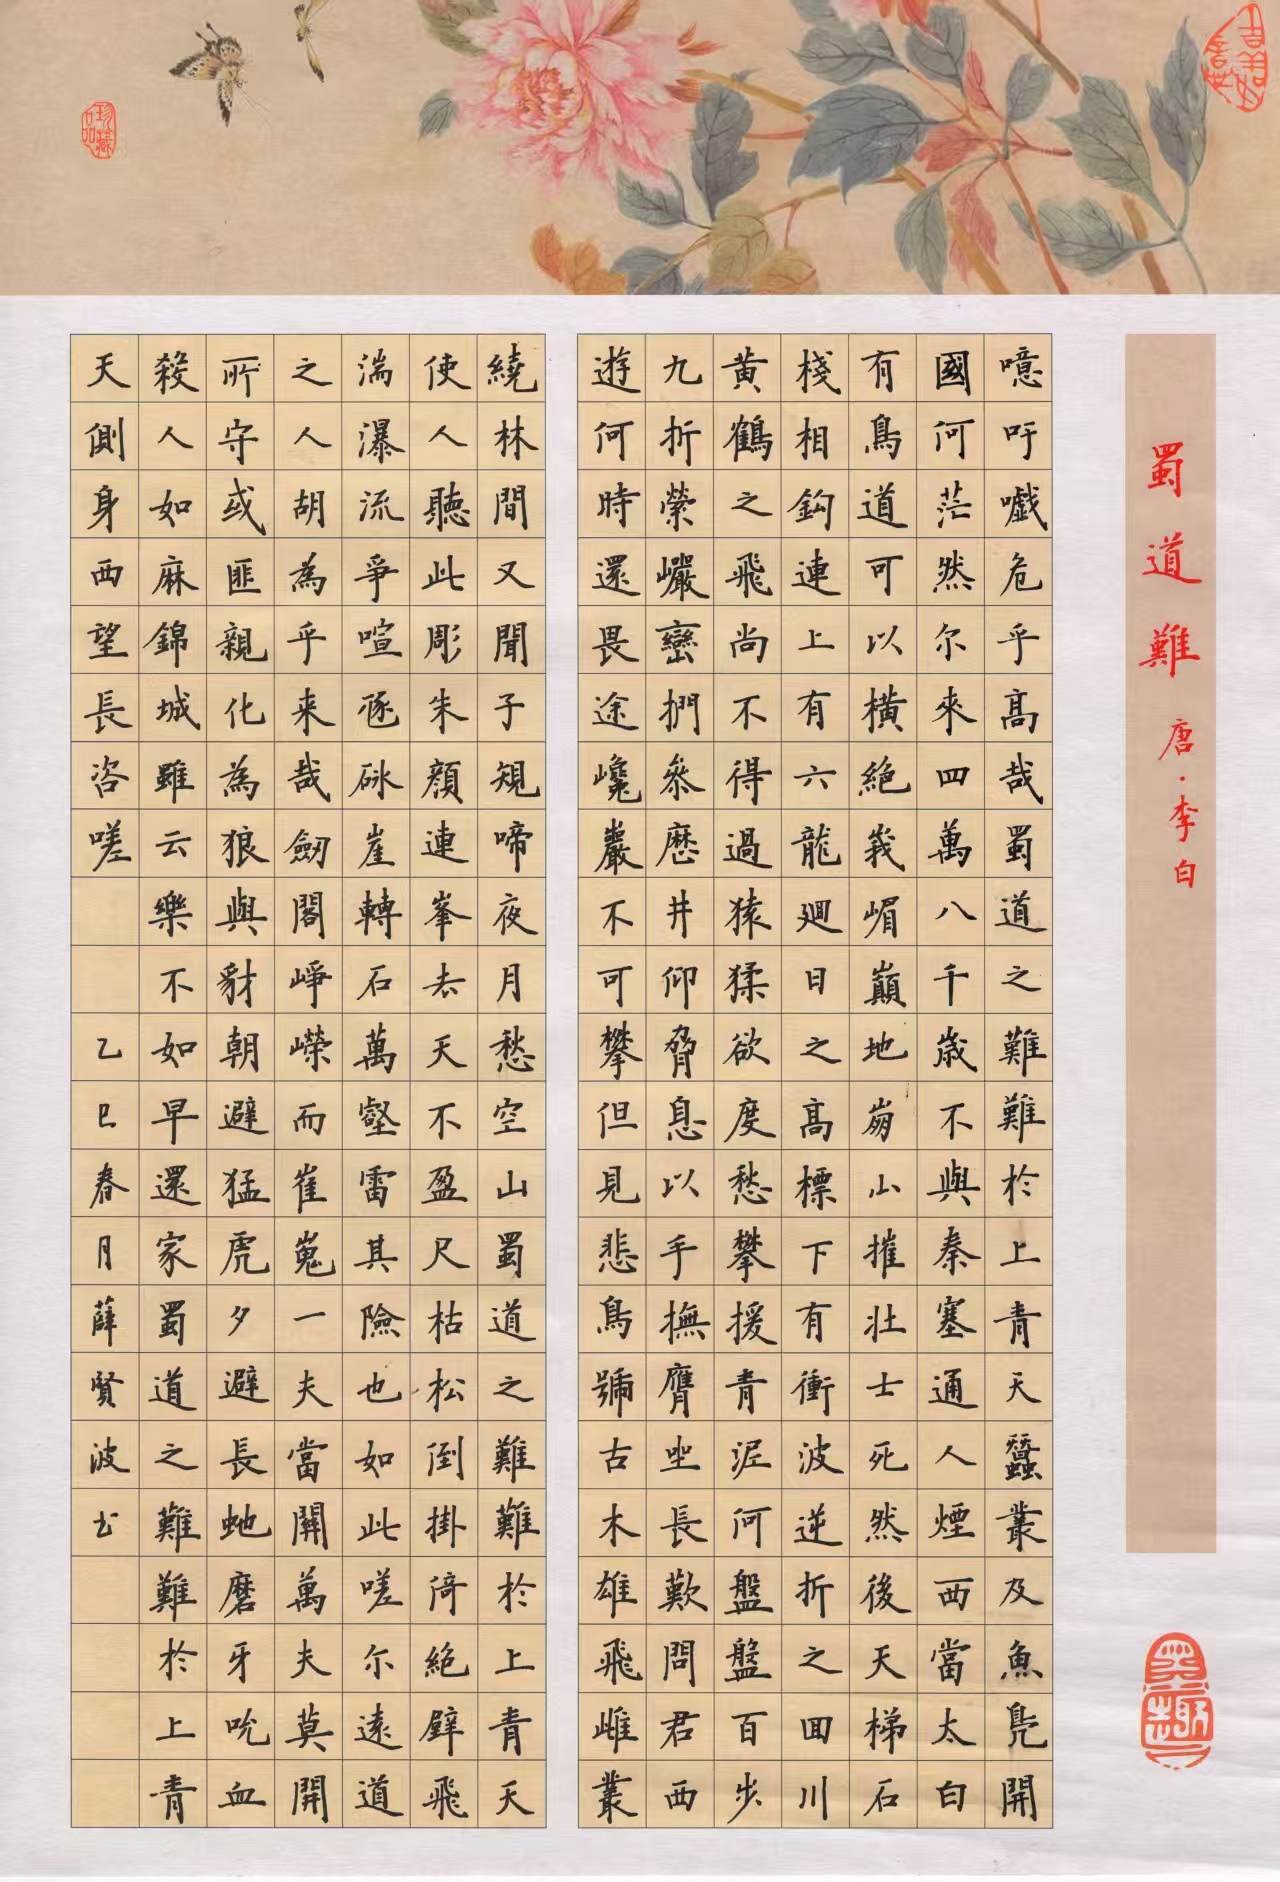 蜀道難 唐·李白
噫吁戲危乎高哉蜀道之難難於上青天蠶叢及魚鳧開
國何茫然尔來四萬八千歲不與秦塞通人煙西當太白
有鳥道可以橫絶峩嵋巔地崩山摧壯士死然後天梯石
棧相鈎連上有六龍廻日之高標下有衝波逆折之回川
黃鶴之飛尚不得過猿猱欲度愁攀援青泥何盤盤百步
九折縈巗巒捫叅歷井仰脅息以手撫膺坐長歎問君西
遊何時還畏途巉巖不可攀但見悲鳥號古木雄飛雌叢
繞林間又聞子規啼夜月愁空山蜀道之難難於上青天
使人聽此彫朱顏連峯去天不盈尺枯松倒掛倚絶壁飛
湍瀑流爭喧豗砯崖轉石萬壑雷其險也如此嗟尔遠道
之人胡為乎来哉劒閣崢嶸而崔嵬一夫當關萬夫莫開
所守或匪親化為狼與豺朝避猛虎夕避長虵磨牙吮血
殺人如麻錦城雖云樂不如早還家蜀道之難難於上青
天側身西望長咨嗟 乙巳春月薛賢波书
珍藏品
墨趣